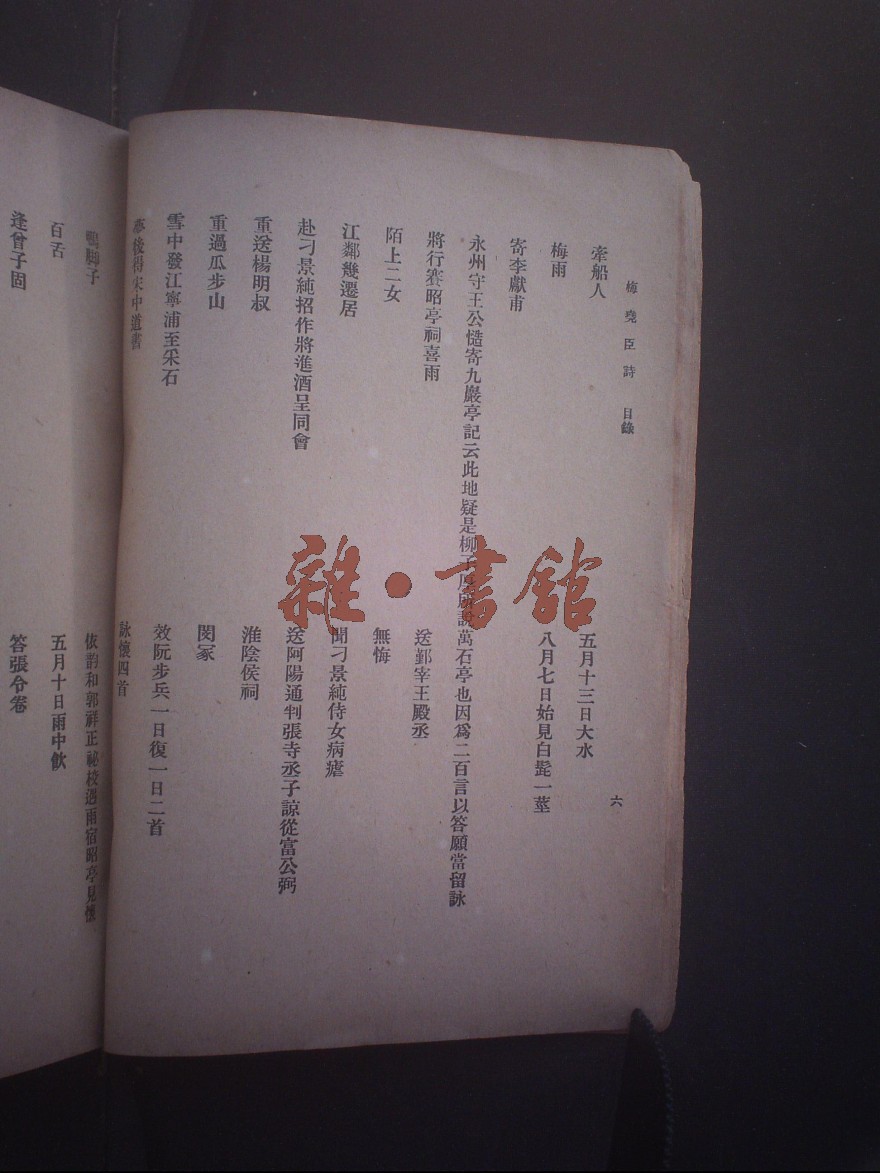 梅堯臣詩 目錄 六
牽船人 五月十三日大水
梅雨 八月七日始見白髭一莖
寄李獻甫
永州守王公慥寄九巖亭記云此地疑是柳子厚所說萬石亭也因爲二百言以答願當留詠
將行賽昭亭祠喜雨 送鄞宰王殿丞
陌上二女 無悔
江鄰幾遷居 聞刁景純侍女病瘧
赴刁景純招作將進酒呈同會 送阿陽通判張寺丞子諒從富公弼
重送楊明叔 淮陰侯祠
重過瓜步山 閔冢
雪中發江寧浦至采石 效阮步兵一日復一日二首
夢後得宋中道書 詠懷四首
鴨腳子 依韵和郭祥正祕校遇雨宿昭亭見懷
百舌 五月十日雨中飲
逢曾子固 答張令卷
雜·書館